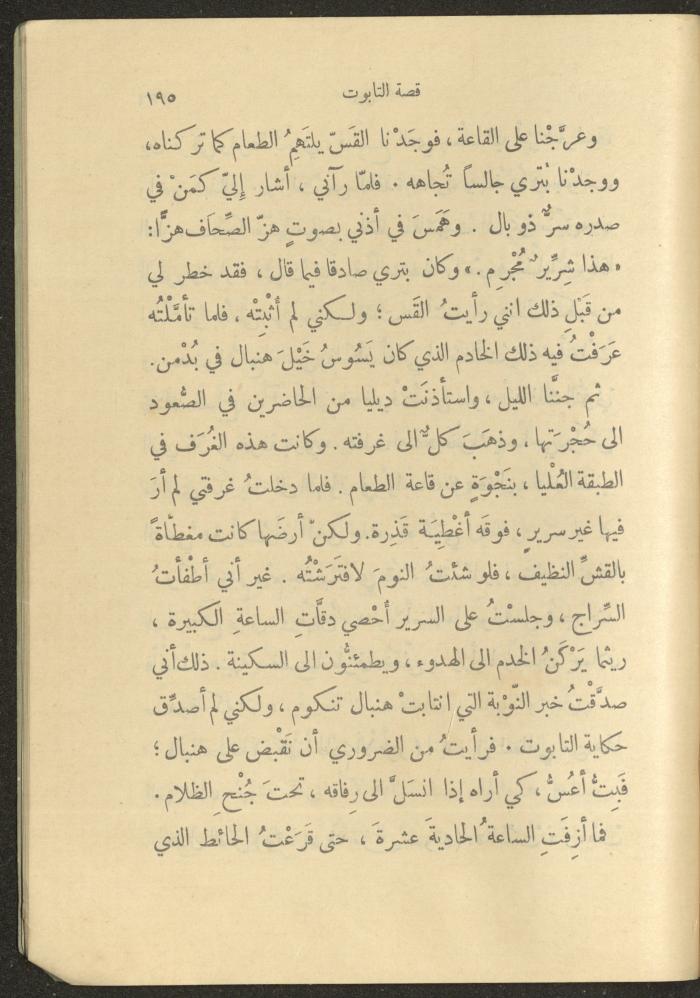 قصة التابوت ١٩٥
وعرَّجْنا على القاعة ، فوجَدْنا القَسّ يلتَهِمُ الطعام كما تركناه،
ووجدْنا بُتري جالساً تُجاهه . فلمّا رآني ، أشار إليّ كمَنْ في
صدره سرٌّ ذو بال . وهَمَسَ في أذني بصوتٍ هزّ الصِّحَاف هزًّا:
« هذا شِرِّيرٌ مُجْرِم .» وكان بتري صادقا فيما قال ، فقد خطر لي
من قَبْلِ ذلك انني رأيتُ القَس ؛ ولكني لم أُثْبِتْه ، فلما تأمَّلْتُه
عَرَفْتُ فيه ذلك الخادم الذي كان يَسُوسُ خَيْلَ هنبال في بُدْمن.
ثم جنَّنا الليل ، واستأذنَتْ ديليا من الحاضرين في الصُّعود
الى حُجْرَتها ، وذهَبَ كلٌّ الى غرفته . وكانت هذه الغُرَف في
الطبقة العُلْيا ، بنَجْوَةٍ عن قاعة الطعام . فلما دخلتُ غرفتي لم أرَ
فيها غير سريرٍ ، فوقَه أغْطِيَة قَذِرة. ولكنّ أرضَها كانت مغطّاةً
بالقشِّ النظيف ، فلو شئتُ النومَ لافتَرَشْتُه . غير أني أطْفأتُ
السِّراج ، وجلسْتُ على السرير أحْصي دقّاتِ الساعةِ الكبيرة ،
ريثما يَرْكَنُ الخدم الى الهدوء ، ويطمئنُّون الى السكينة . ذلك أني
صدَّقْتُ خبر النَّوْبة التي انتابتْ هنبال تنكوم ، ولكني لم أصدِّق
حكاية التابوت . فرأيتُ من الضروري أن نَقْبض على هنبال ؛
فَبِتُّ أعُسُّ ، كي أراه إذا انسَلَّ الى رِفاقه ، تحتَ جُنْحِ الظلام .
فما أزِفَتِ الساعةُ الحاديةَ عشرةَ ، حتى قَرَعْتُ الحائط الذي